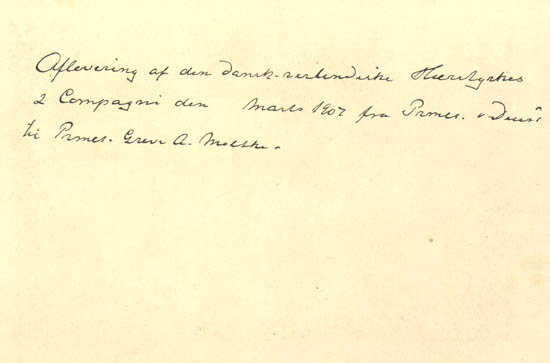 Aflevering af den dansk-vestindiske Hærstyrkes
2 Compagni den Marts 1907 fra Prmct.
til Prmct. Greve A. Moltke.